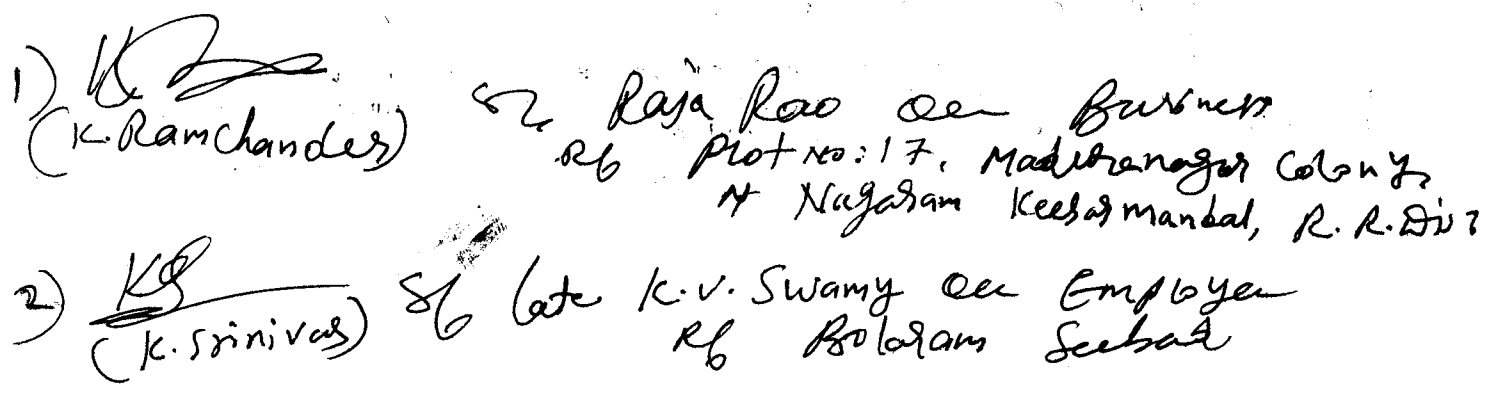 1)
(K. Ramchander) S/o Raja Rao occ Business
R/o Plot No: 17, Maduranagar Colony,
At Nagaram Keesar mandal, R. R. Dist
2)
(K. Srinivas) S/o late K.V. Swamy occ Employee
R/o Bolaram Secbad